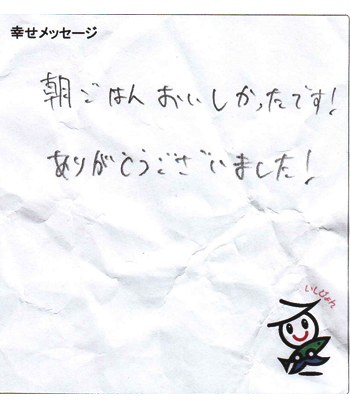 幸せメッセージ
朝ごはんおいしかったです!
ありがとうございました!
いしぴょん